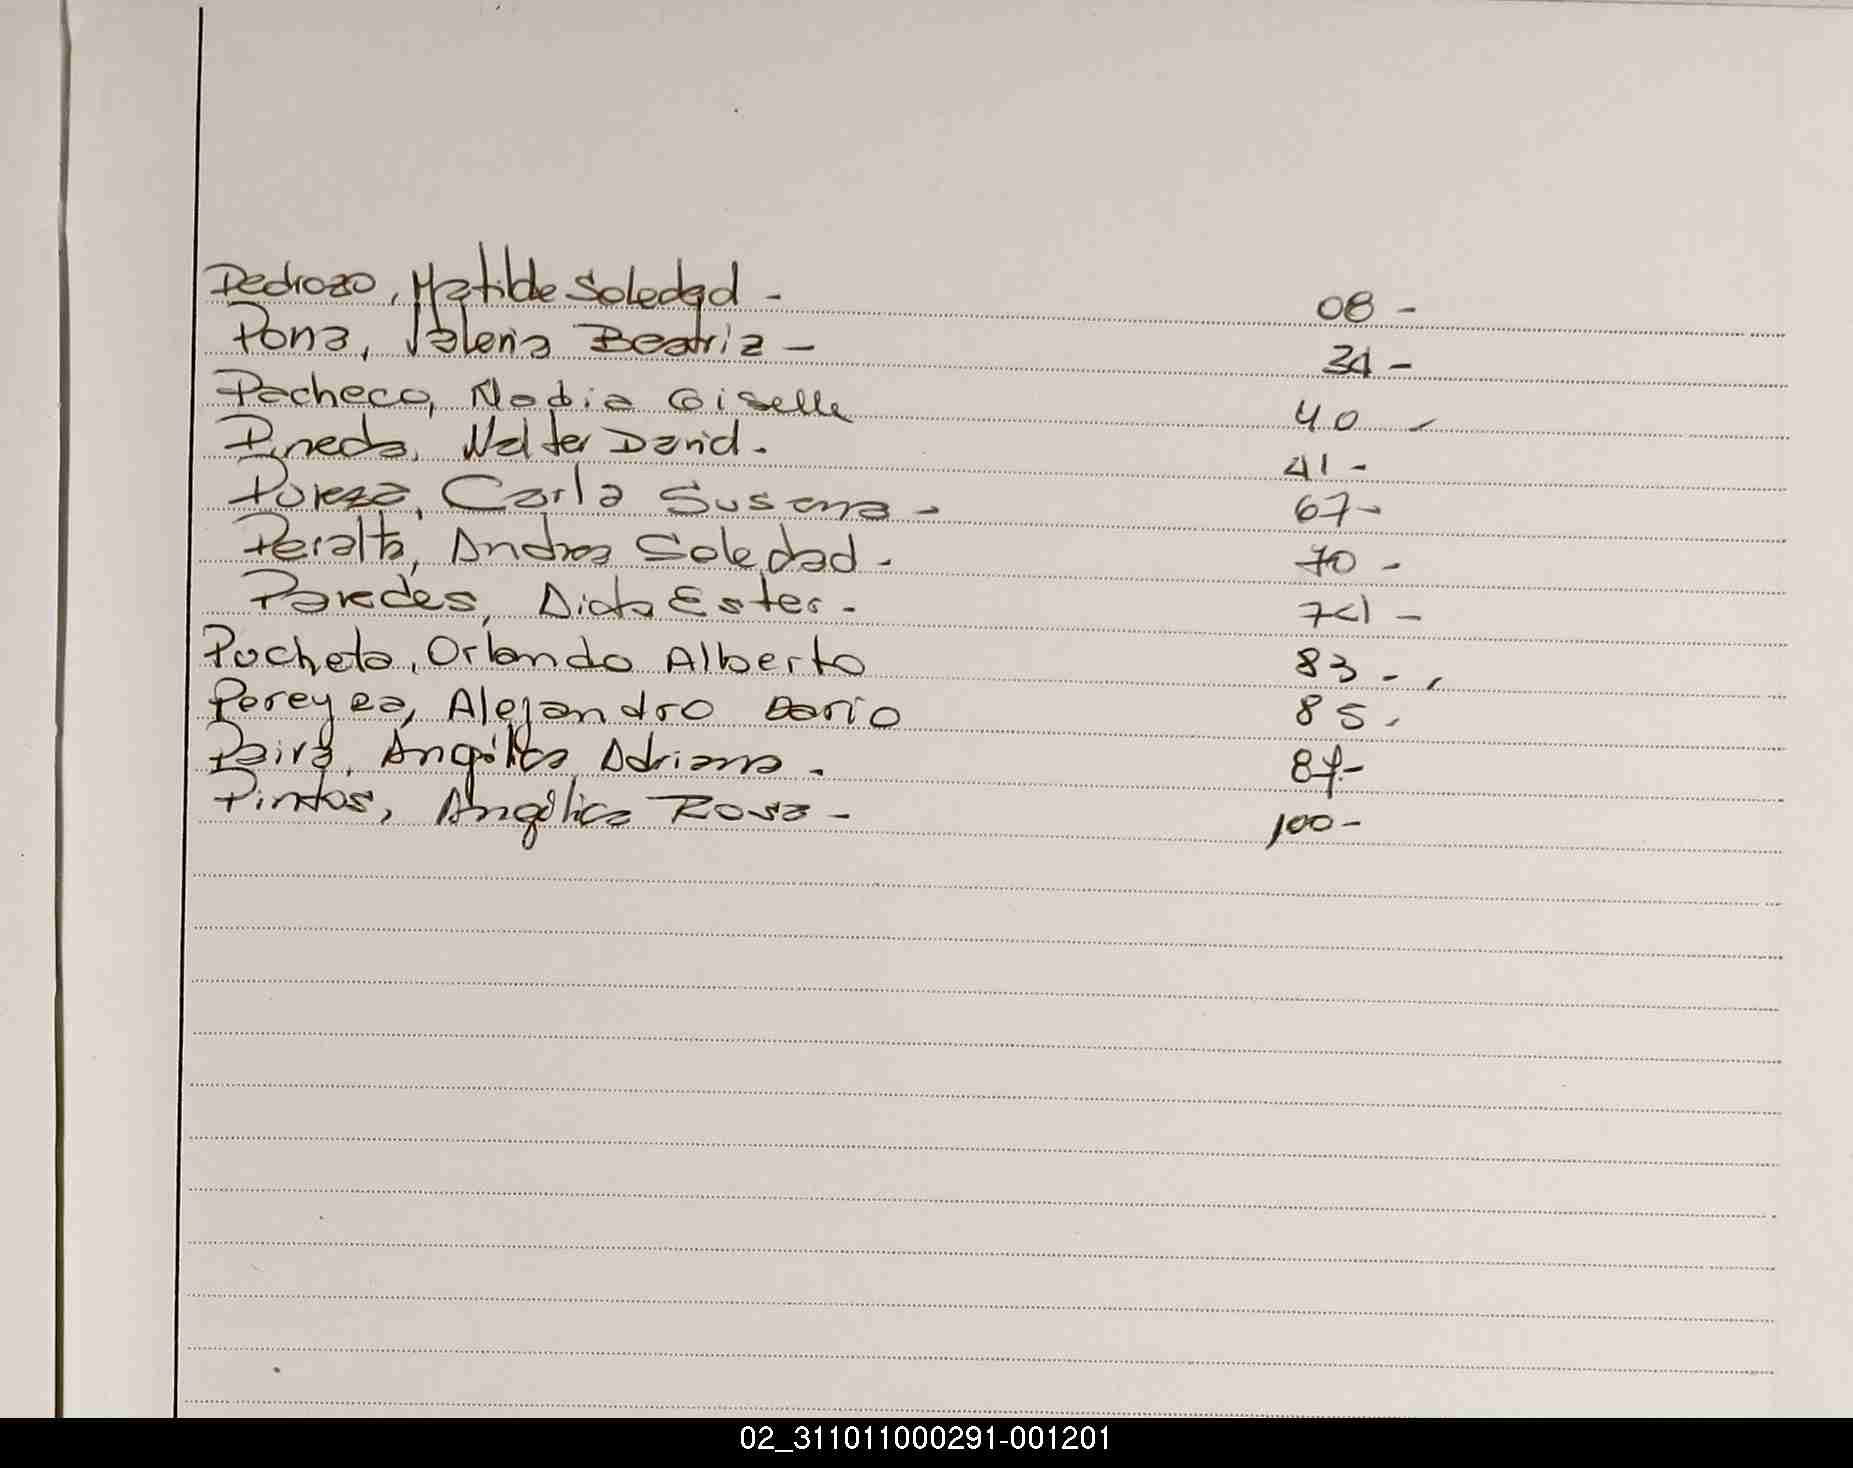 Pedrozo, Matilde Soledad - 08 -
Pona, Valeria Beatriz - 34 -
Pacheco, Nadia Giselle 40 -
Pineda, Walter David. 41 -
Carla Susana - 67 -
Peralta, Andrea Soledad - 70 -
Paredes, Ester - 74 -
Pocheto, Orlando Alberto 83 -
Pereyra, Alejandro Dario 85 -
Paira, Angélica Adriana - 87 -
Pintos, Angélica Rosa - 100 -
02_311011000291-001201